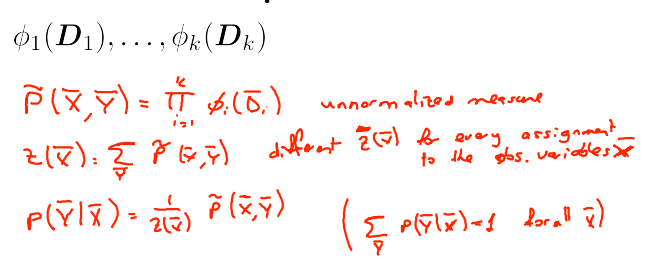 ϕ₁(D₁), . . . , ϕₖ(Dₖ)
P̃(X̄,Ȳ) = ∏ᵢ₌₁ᵏ ϕᵢ(D̄ᵢ) unnormalized measure
Z(X̄) = ∑_Ȳ P̃(X̄,Ȳ) different Z(X̄) for every assignment
to the obs. variables X̄
P(Ȳ|X̄) = 1/Z(X̄) P̃(X̄,Ȳ) (∑_Ȳ P(Ȳ|X̄)=1 for all X̄)